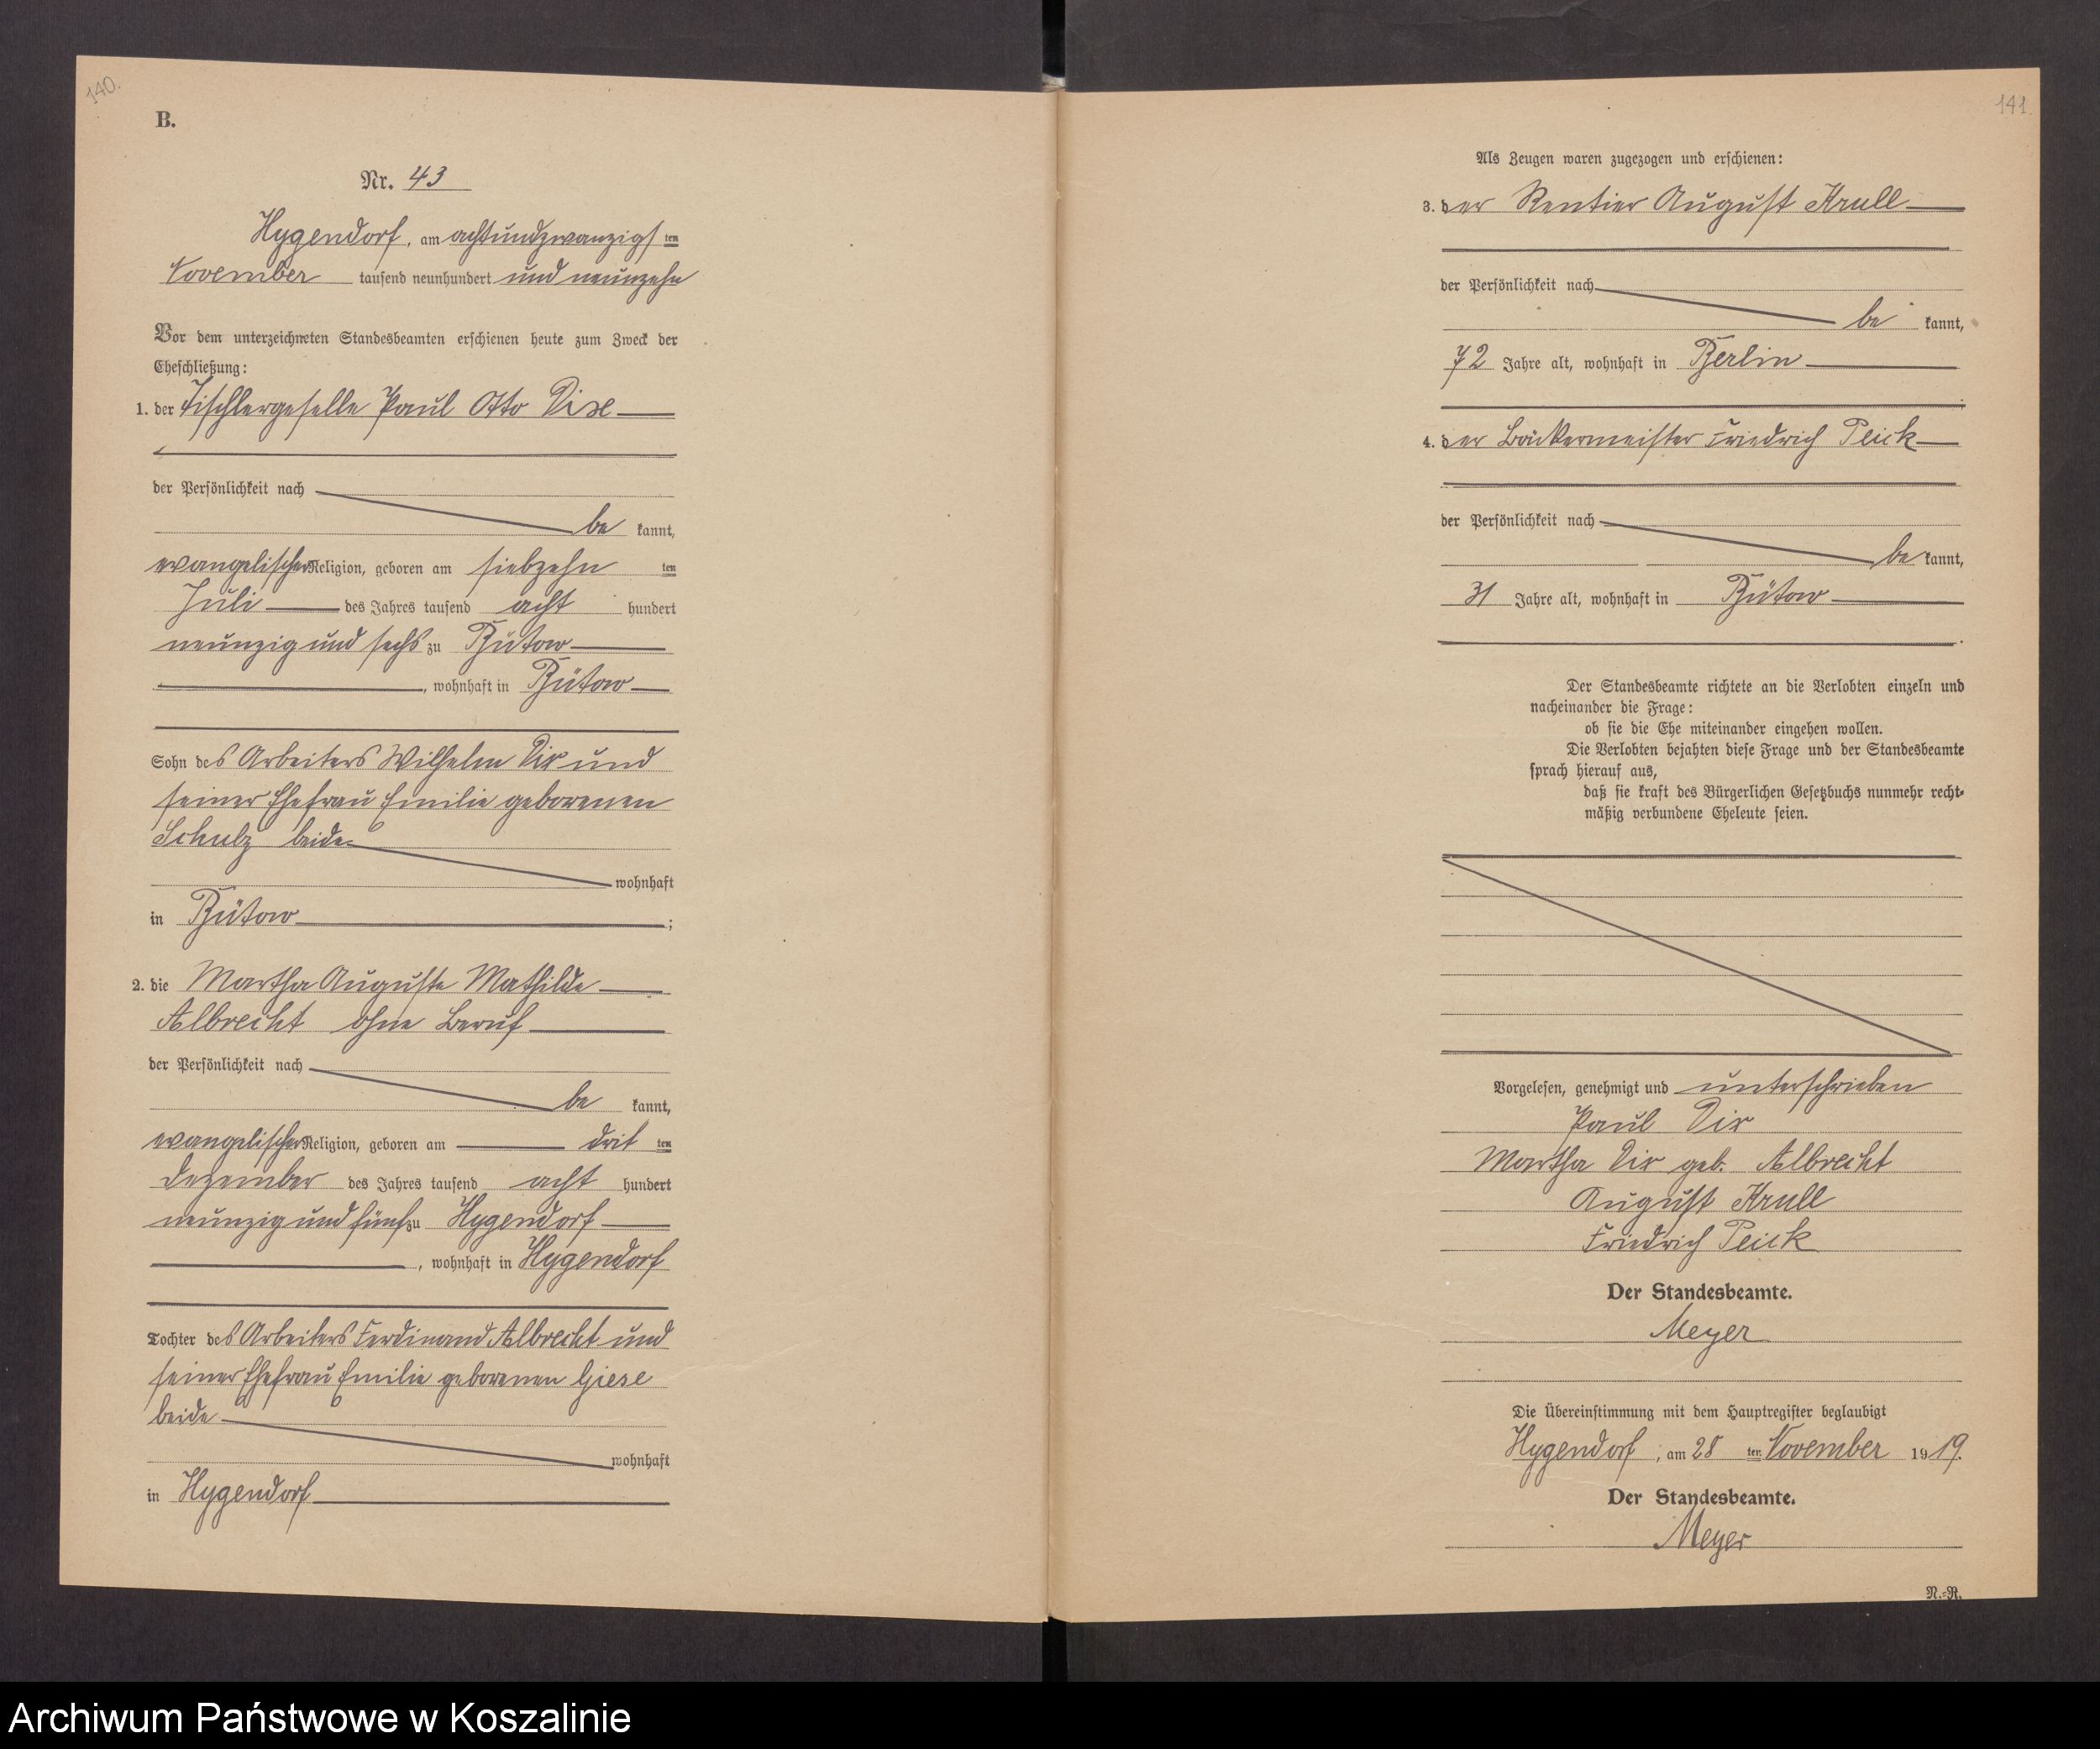 140.
B.
Nr. 43
Hygendorf, am achtundzwanzigsten
November tausend neunhundert und neunzehn
Vor dem unterzeichneten Standesbeamten erschienen heute zum Zweck der
Eheschließung:
1. der Tischlergeselle Paul Otto
der Persönlichkeit nach
be kannt,
evangelischer Religion, geboren am siebzehn ten
Juli des Jahres tausend acht hundert
neunzig und sechs zu Bütow
, wohnhaft in Bütow
Sohn des Arbeiters Wilhelm Dix und
seiner Ehefrau Emilie geborenen
Schulz beide
wohnhaft
in Bütow ;
2. die Martha Auguste Mathilde
Albrecht ohne Beruf
der Persönlichkeit nach
be kannt,
evangelischer Religion, geboren am drit ten
Dezember des Jahres tausend acht hundert
neunzig und fünf zu Hygendorf
, wohnhaft in Hygendorf
Tochter des Arbeiters Ferdinand Albrecht und
seiner Ehefrau Emilie geborenen Giese
beide
wohnhaft
in Hygendorf
141.
Als Zeugen waren zugezogen und erschienen:
3. der Rentier August Krull
der Persönlichkeit nach
be kannt,
72 Jahre alt, wohnhaft in Berlin
4. der Bäckermeister Friedrich Peick
der Persönlichkeit nach
be kannt,
31 Jahre alt, wohnhaft in Bütow
Der Standesbeamte richtete an die Verlobten einzeln und
nacheinander die Frage:
ob sie die Ehe miteinander eingehen wollen.
Die Verlobten bejahten diese Frage und der Standesbeamte
sprach hierauf aus,
daß sie kraft des Bürgerlichen Gesetzbuchs nunmehr recht-
mäßig verbundene Eheleute seien.
Vorgelesen, genehmigt und unterschrieben
Paul Dix
Martha Dix geb. Albrecht
August Krull
Friedrich Peick
Der Standesbeamte.
Meyer
Die Übereinstimmung mit dem Hauptregister beglaubigt
Hygendorf, am 28 ten November 1919.
Der Standesbeamte.
Meyer
N.-R.
Archiwum Państwowe w Koszalinie